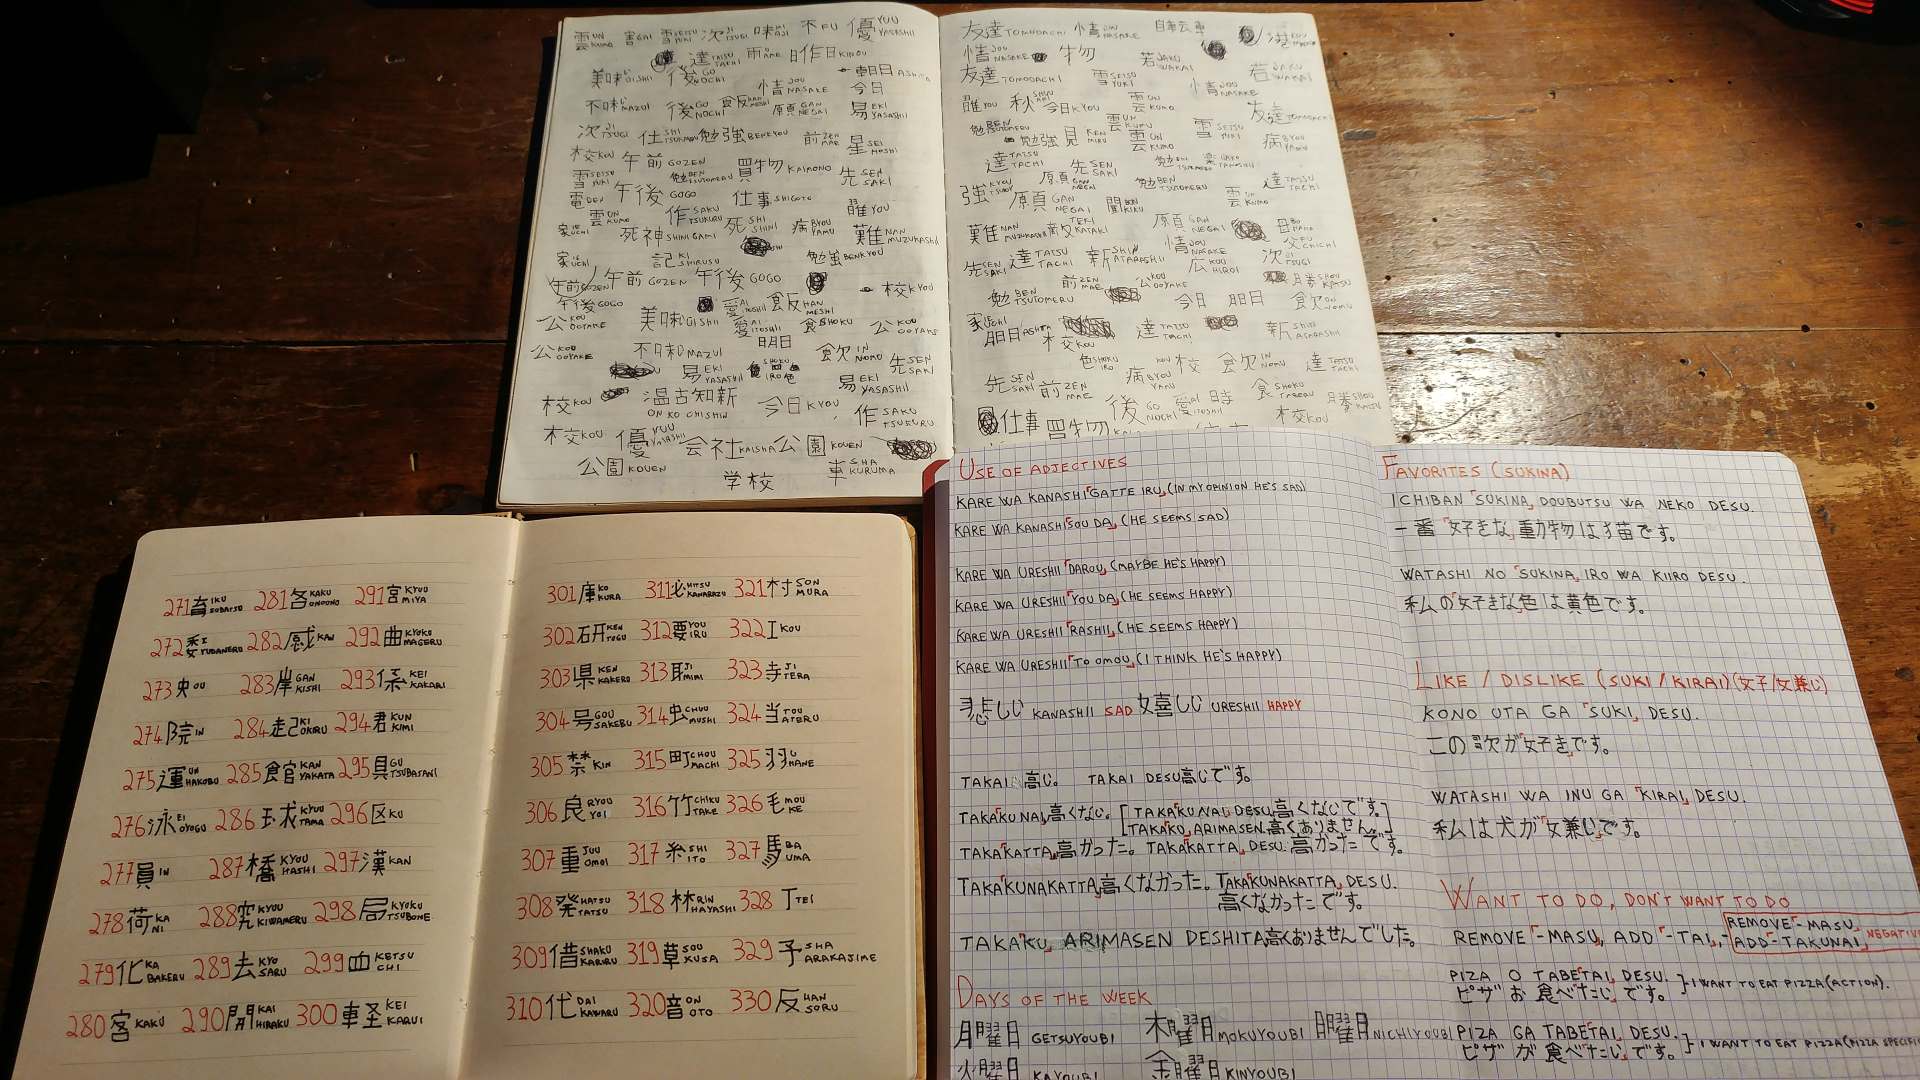 雲 UN KUMO 書 GAI 雪 SETSU YUKI 次 JI TSUGI 味 MI AJI 不 FU 優 YUU YASASHII
達 TATSU TACHI 雨 AME 昨日 KINOU
美味 OISHII 後 GO NOCHI 朝日 ASHITA
情 JOU NASAKE 今日
不味 MAZUI 後 GO NOCHI 飯 HAN MESHI 願 GAN NEGAI 易 EKI YASASHII
次 JI TSUGI 仕 SHI TSUKAU 勉強 BENKYOU 前 ZEN MAE 星 SEI HOSHI
校 KOU 午前 GOZEN 買物 KAIMONO 先 SEN SAKI
雪 SETSU YUKI 勉 BEN TSUTOMERU
電 DEN 午後 GOGO 仕事 SHIGOTO
雲 UN KUMO 作 SAKU TSUKURU 死 SHI SHINI 病 BYOU YAMU 曜 YOU
家 UCHI 死神 SHINIGAMI 難 NAN MUZUKASHII
家 UCHI 記 KI SHIRUSU 勉強 BENKYOU
午前 GOZEN 午前 GOZEN 午後 GOGO
午後 GOGO 愛 AI ITOSHII 飯 HAN MESHI 校 KYOU
公 KOU OOYAKE 美味 OISHII 愛 AI ITOSHII 食 SHOKU 公 KOU OOYAKE
明日
公 KOU OOYAKE 不味 MAZUI 飲 IN NOMU 先 SEN SAKI
易 EKI YASASHII SHOKU IRO 色 易 EKI YASASHII
校 KOU 温古知新 ON KO CHI SHIN 今日 KYOU 作 SAKU TSUKURU
校 KOU 優 YUU YASASHII 会社 KAISHA 公園 KOUEN
公園 KOUEN 学校 車 SHA KURUMA
友達 TOMODACHI 情 JOU NASAKE 自転車
情 JOU NASAKE 物 若 JAKU WAKAI 若 JAKU WAKAI
友達 TOMODACHI 雪 SETSU YUKI 情 JOU NASAKE
曜 YOU 秋 SHUU AKI 今日 KYOU 雲 UN KUMO 友達 TOMODACHI
勉強 見 KEN MIRU 雲 UN KUMO 雲 UN KUMO 雪 SETSU YUKI 病 BYOU YAMU
達 TATSU TACHI 先 SEN SAKI 勉 BEN TSUTOMERU
強 KYOU TSUYOI 願 GAN NEGAI 願 GAN NEGAI 聞 BUN KIKU 勉 BEN TSUTOMERU 雲 UN KUMO 達 TATSU TACHI
難 NAN MUZUKASHII 敵 TEKI KATAKI 願 GAN NEGAI 母 BO
先 SEN SAKI 達 TATSU TACHI 新 SHIN ATARASHII 情 JOU NASAKE 広 KOU HIROI 父 FU CHICHI 次 JI TSUGI
勉 BEN TSUTOMERU 前 ZEN MAE 公 KOU OOYAKE 今日 明日 飲 NOMU
家 UCHI 明日 ASHITA 校 KOU 達 TATSU TACHI 新 SHIN ATARASHII
色 SHOKU IRO 病 BYOU YAMU 校 飲 IN NOMU 達 TATSU TACHI
先 SEN SAKI 前 ZEN MAE 後 GO NOCHI 愛 AI ITOSHII 時 食 SHOKU TABERU
仕事 買物 校 KOU
271 育 IKU SODATSU 281 各 KAKU ONOONO 291 宮 KYUU MIYA
272 委 I YUDANERU 282 感 KAN 292 曲 KYOKU MAGERU
273 央 OU 283 岸 GAN KISHI 293 係 KEI KAKARI
274 院 IN 284 起 KI OKIRU 294 君 KUN KIMI
275 運 UN HAKOBU 285 館 KAN YAKATA 295 具 GU TSUBASANI
276 泳 EI OYOGU 286 球 KYUU TAMA 296 区 KU
277 員 IN 287 橋 KYOU HASHI 297 漢 KAN
278 荷 KA NI 288 究 KYUU KIWAMERU 298 局 KYOKU TSUBONE
279 化 KA BAKERU 289 去 KYO SARU 299 血 KETSU CHI
280 客 KAKU 290 開 KAI HIRAKU 300 軽 KEI KARUI
301 庫 KO KURA 311 必 HITSU KANARAZU 321 村 SON MURA
302 研 KEN TOGU 312 要 YOU IRU 322 工 KOU
303 県 KEN KAKERO 313 耳 JI MIMI 323 寺 JI TERA
304 号 GOU SAKEBU 314 虫 CHUU MUSHI 324 当 TOU ATERU
305 禁 KIN 315 町 CHOU MACHI 325 羽 U HANE
306 良 RYOU YOI 316 竹 CHIKU TAKE 326 毛 MOU KE
307 重 JUU OMOI 317 糸 SHI ITO 327 馬 BA UMA
308 発 HATSU TATSU 318 林 RIN HAYASHI 328 丁 TEI
309 借 SHAKU KARIRU 319 草 SOU KUSA 329 予 SHA ARAKAJIME
310 代 DAI KAWARU 320 音 ON OTO 330 反 HAN SORU
USE OF ADJECTIVES
KARE WA KANASHI「GATTE IRU」(IN MY OPINION HE'S SAD)
KARE WA KANASHI「SOU DA」(HE SEEMS SAD)
KARE WA URESHII「DAROU」(MAYBE HE'S HAPPY)
KARE WA URESHII「YOU DA」(HE SEEMS HAPPY)
KARE WA URESHII「RASHII」(HE SEEMS HAPPY)
KARE WA URESHII「TO OMOU」(I THINK HE'S HAPPY)
悲しい KANASHII SAD 嬉しい URESHII HAPPY
TAKAI 高い。 TAKAI DESU 高いです。
TAKA「KUNAI」高くない。[TAKA「KUNAI」DESU 高くないです。]
[TAKA「KU」ARIMASEN 高くありません。]
TAKA「KATTA」高かった。TAKA「KATTA」DESU 高かったです。
TAKA「KUNAKATTA」高くなかった。TAKA「KUNAKATTA」DESU.
高くなかったです。
TAKA「KU」ARIMASEN DESHITA 高くありませんでした。
DAYS OF THE WEEK
月曜日 GETSUYOUBI 木曜日 MOKUYOUBI 日曜日 NICHIYOUBI
火曜日 KAYOUBI 金曜日 KINYOUBI
FAVORITES (SUKINA)
ICHIBAN「SUKINA」DOUBUTSU WA NEKO DESU.
一番「好きな」動物は猫です。
WATASHI NO「SUKINA」IRO WA KIIRO DESU.
私の「好きな」色は黄色です。
LIKE / DISLIKE (SUKI / KIRAI) (好/嫌い)
KONO UTA GA「SUKI」DESU.
この歌が「好き」です。
WATASHI WA INU GA「KIRAI」DESU.
私は犬が「嫌い」です。
WANT TO DO, DON'T WANT TO DO
REMOVE「-MASU」, ADD「-TAI」. REMOVE「-MASU」 ADD「-TAKUNAI」
PIZA O TABE「TAI」DESU. } I WANT TO EAT PIZZA (ACTION).
ピザお食べ「たい」です。
PIZA GA TABE「TAI」DESU. } I WANT TO EAT PIZZA (PIZZA
ピザが食べ「たい」です。